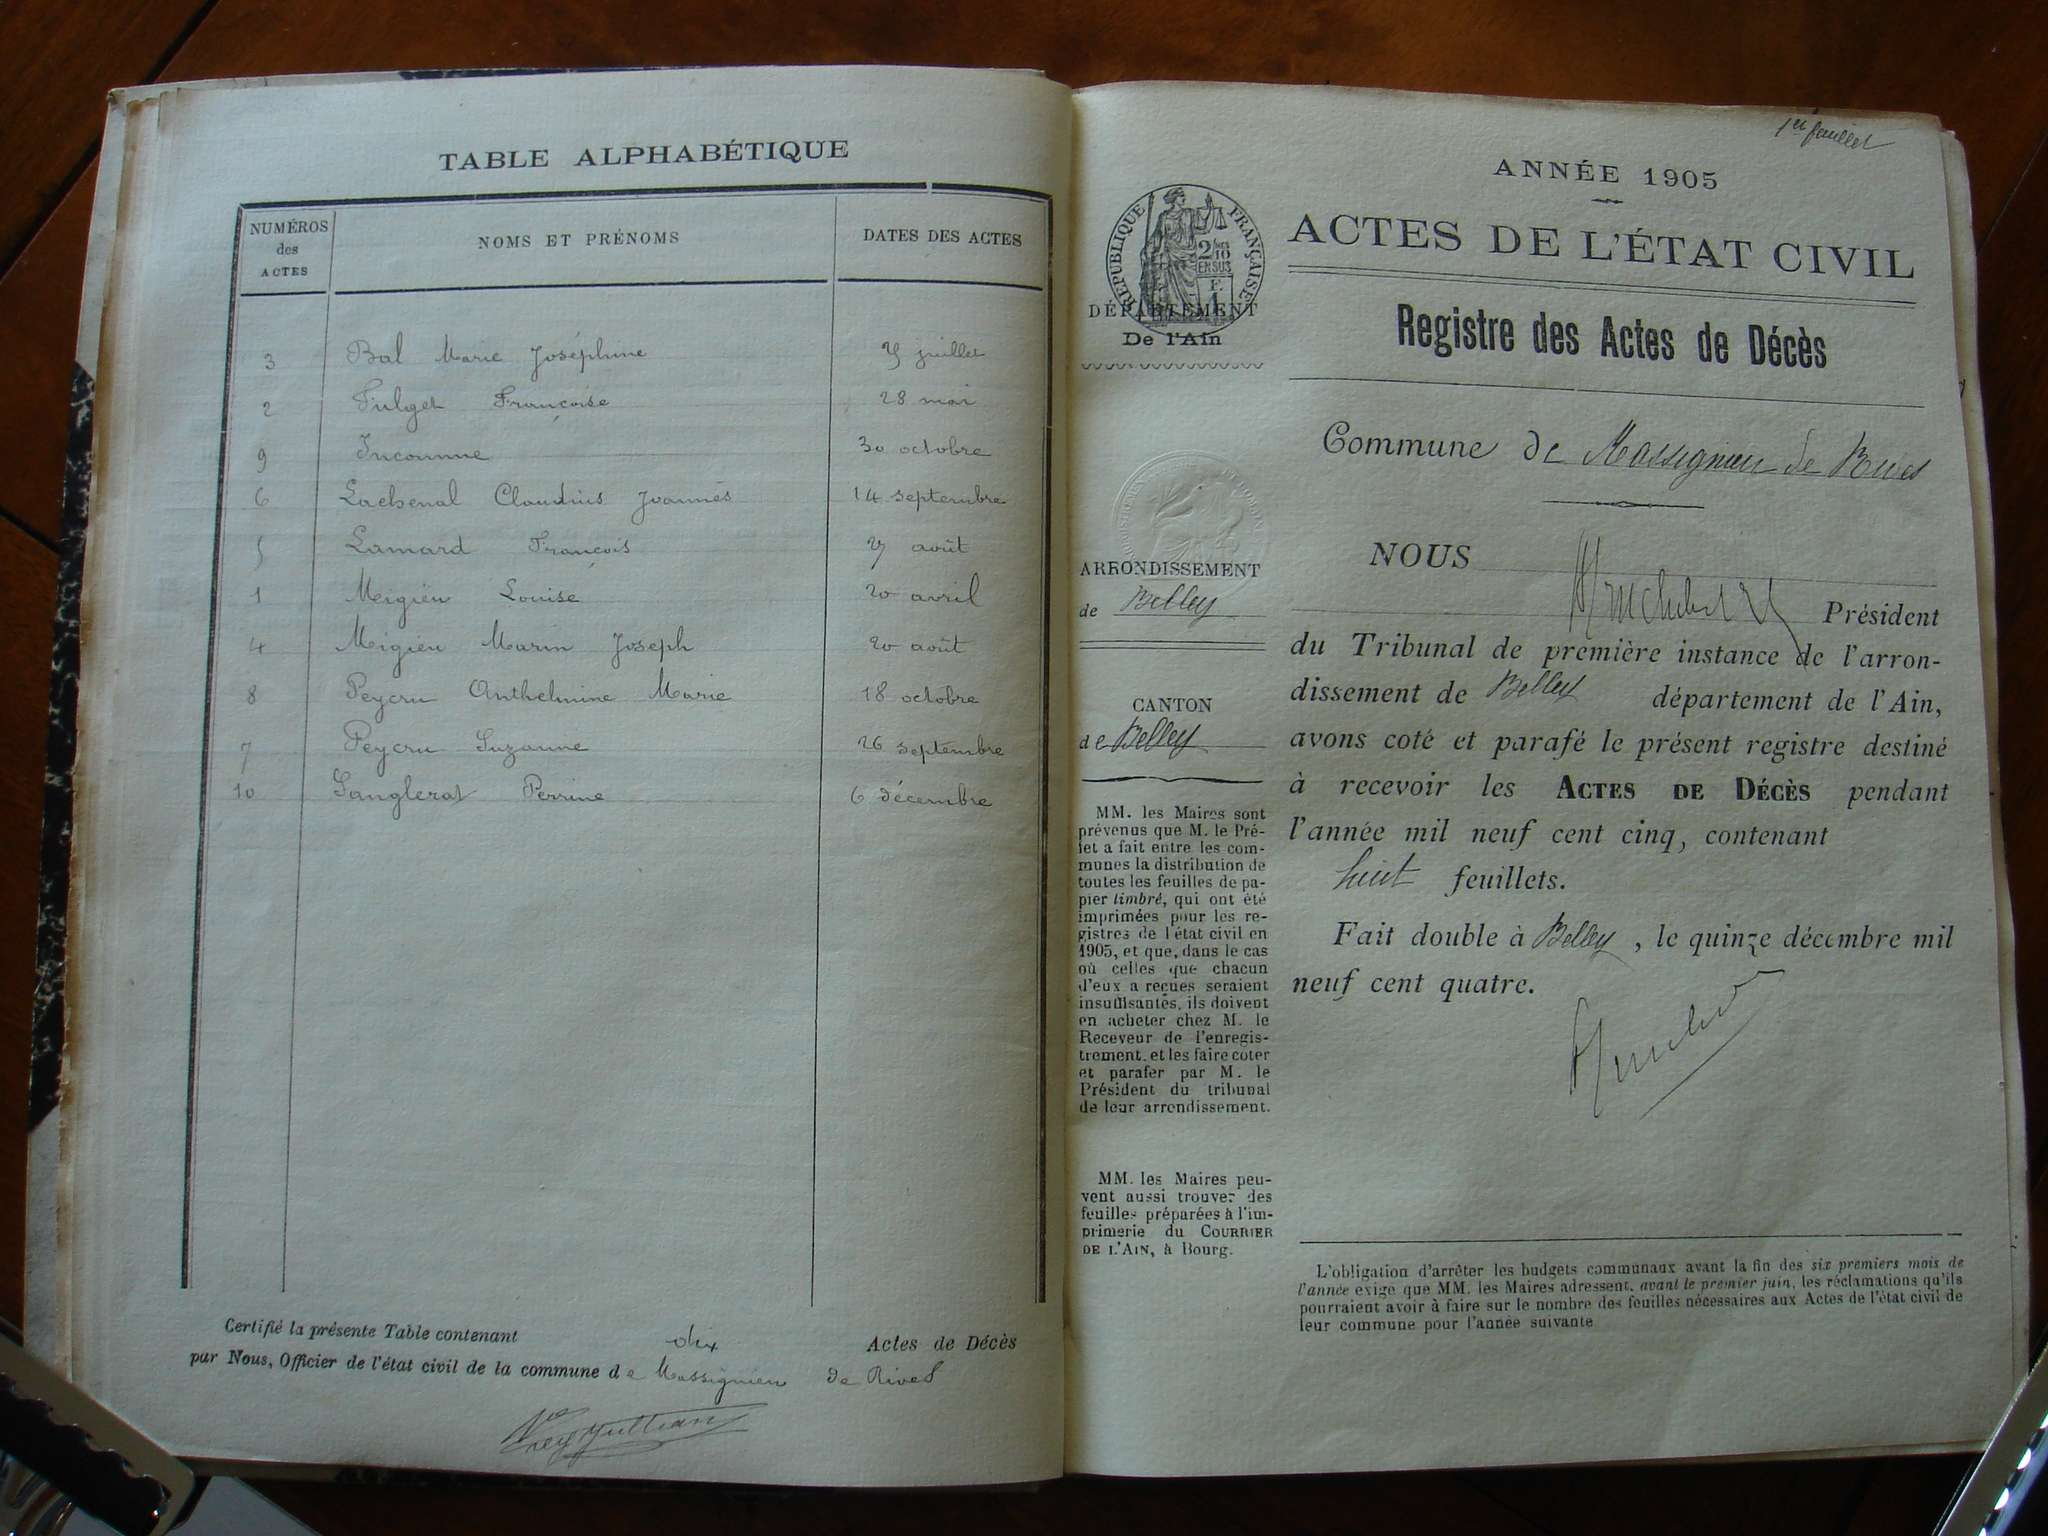 TABLE ALPHABÉTIQUE
NUMÉROS des ACTES NOMS ET PRÉNOMS DATES DES ACTES
3 Bal Marie Joséphine 25 juillet
2 Fulget Françoise 28 mai
9 Inconnue 30 octobre
6 Lachenal Claudius Joannès 14 septembre
5 Lamard François août
1 Migieu Louise 20 avril
4 Migieu Marin Joseph 20 août
8 Peycru Anthelmine Marie 18 octobre
7 Peycru Suzanne 26 septembre
10 Sanglerat Perrine 6 décembre
Certifié la présente Table contenant dix Actes de Décès
par Nous, Officier de l'état civil de la commune de Massignieu de Rives
1er feuillet
ANNÉE 1905
ACTES DE L'ÉTAT CIVIL
Registre des Actes de Décès
Commune de Massignieu de Rives
NOUS
Président
du Tribunal de première instance de l'arron-
dissement de Belley département de l'Ain,
avons coté et parafé le présent registre destiné
à recevoir les ACTES DE DÉCÈS pendant
l'année mil neuf cent cinq, contenant
huit feuillets.
Fait double à Belley, le quinze décembre mil
neuf cent quatre.
L'obligation d'arrêter les budgets communaux avant la fin des six premiers mois de
l'année exige que MM. les Maires adressent, avant le premier juin, les réclamations qu'ils
pourraient avoir à faire sur le nombre des feuilles nécessaires aux Actes de l'état civil de
leur commune pour l'année suivante
RÉPUBLIQUE FRANÇAISE
2/10
EN SUS
F.
1
DÉPARTEMENT
De l'Ain
ARRONDISSEMENT
de Belley
CANTON
de Belley
MM. les Maires sont
prévenus que M. le Pré-
fet a fait entre les com-
munes la distribution de
toutes les feuilles de pa-
pier timbré, qui ont été
imprimées pour les re-
gistres de l'état civil en
1905, et que, dans le cas
où celles que chacun
d'eux a reçues seraient
insuffisantes, ils doivent
en acheter chez M. le
Receveur de l'enregis-
trement, et les faire coter
et parafer par M. le
Président du tribunal
de leur arrondissement.
MM. les Maires peu-
vent aussi trouver des
feuilles préparées à l'im-
primerie du COURRIER
DE L'AIN, à Bourg.